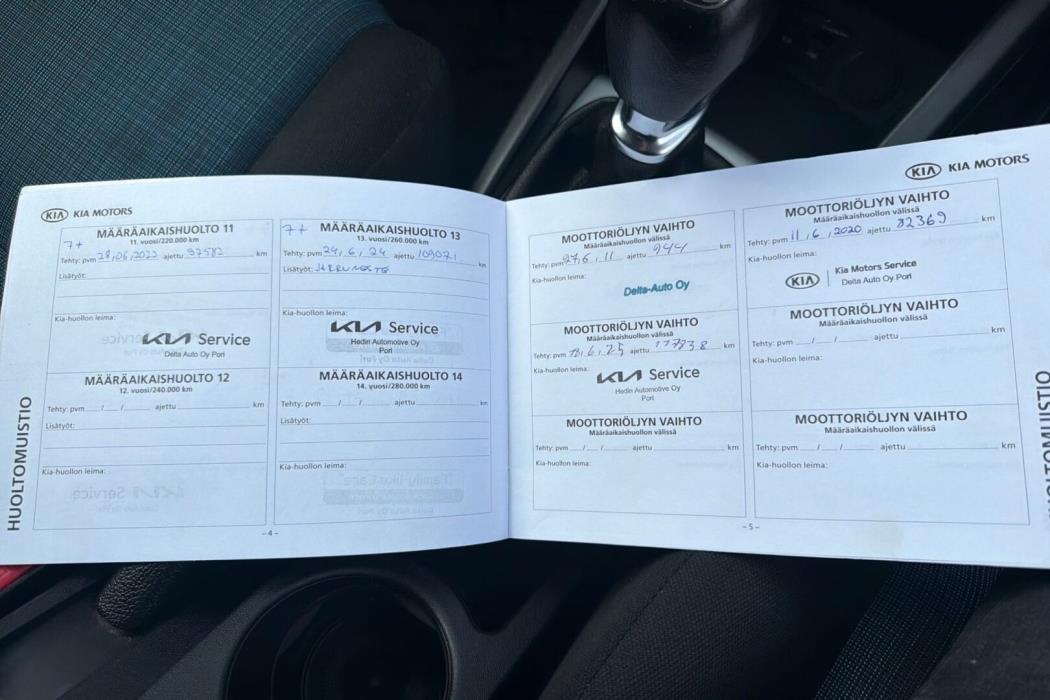 KIA KIA MOTORS
HUOLTOMUISTIO
MÄÄRÄAIKAISHUOLTO 11
11. vuosi/220.000 km
7+
Tehty: pvm 28,06,2022 ajettu 97582 km
Lisätyöt:
Kia-huollon leima:
KIA Service
Delta Auto Oy Pori
MÄÄRÄAIKAISHUOLTO 12
12. vuosi/240.000 km
Tehty: pvm / / ajettu km
Lisätyöt:
Kia-huollon leima:
MÄÄRÄAIKAISHUOLTO 13
13. vuosi/260.000 km
7+
Tehty: pvm 24, 6, 24 ajettu 109071 km
Lisätyöt:
Kia-huollon leima:
KIA Service
Hedin Automotive Oy
Pori
MÄÄRÄAIKAISHUOLTO 14
14. vuosi/280.000 km
Tehty: pvm / / ajettu km
Lisätyöt:
Kia-huollon leima:
-4-
MOOTTORIÖLJYN VAIHTO
Määräaikaishuollon välissä
Tehty: pvm 27,6,11 ajettu 944 km
Kia-huollon leima:
Delta-Auto Oy
MOOTTORIÖLJYN VAIHTO
Määräaikaishuollon välissä
Tehty: pvm 18,6,25 ajettu 117838 km
Kia-huollon leima:
KIA Service
Hedin Automotive Oy
Pori
MOOTTORIÖLJYN VAIHTO
Määräaikaishuollon välissä
Tehty: pvm / / ajettu km
Kia-huollon leima:
KIA KIA MOTORS
MOOTTORIÖLJYN VAIHTO
Määräaikaishuollon välissä
Tehty: pvm 11,6,2020 ajettu 82369 km
Kia-huollon leima:
KIA Kia Motors Service
Delta Auto Oy Pori
MOOTTORIÖLJYN VAIHTO
Määräaikaishuollon välissä
Tehty: pvm / / ajettu km
Kia-huollon leima:
MOOTTORIÖLJYN VAIHTO
Määräaikaishuollon välissä
Tehty: pvm / / ajettu km
Kia-huollon leima:
-5-